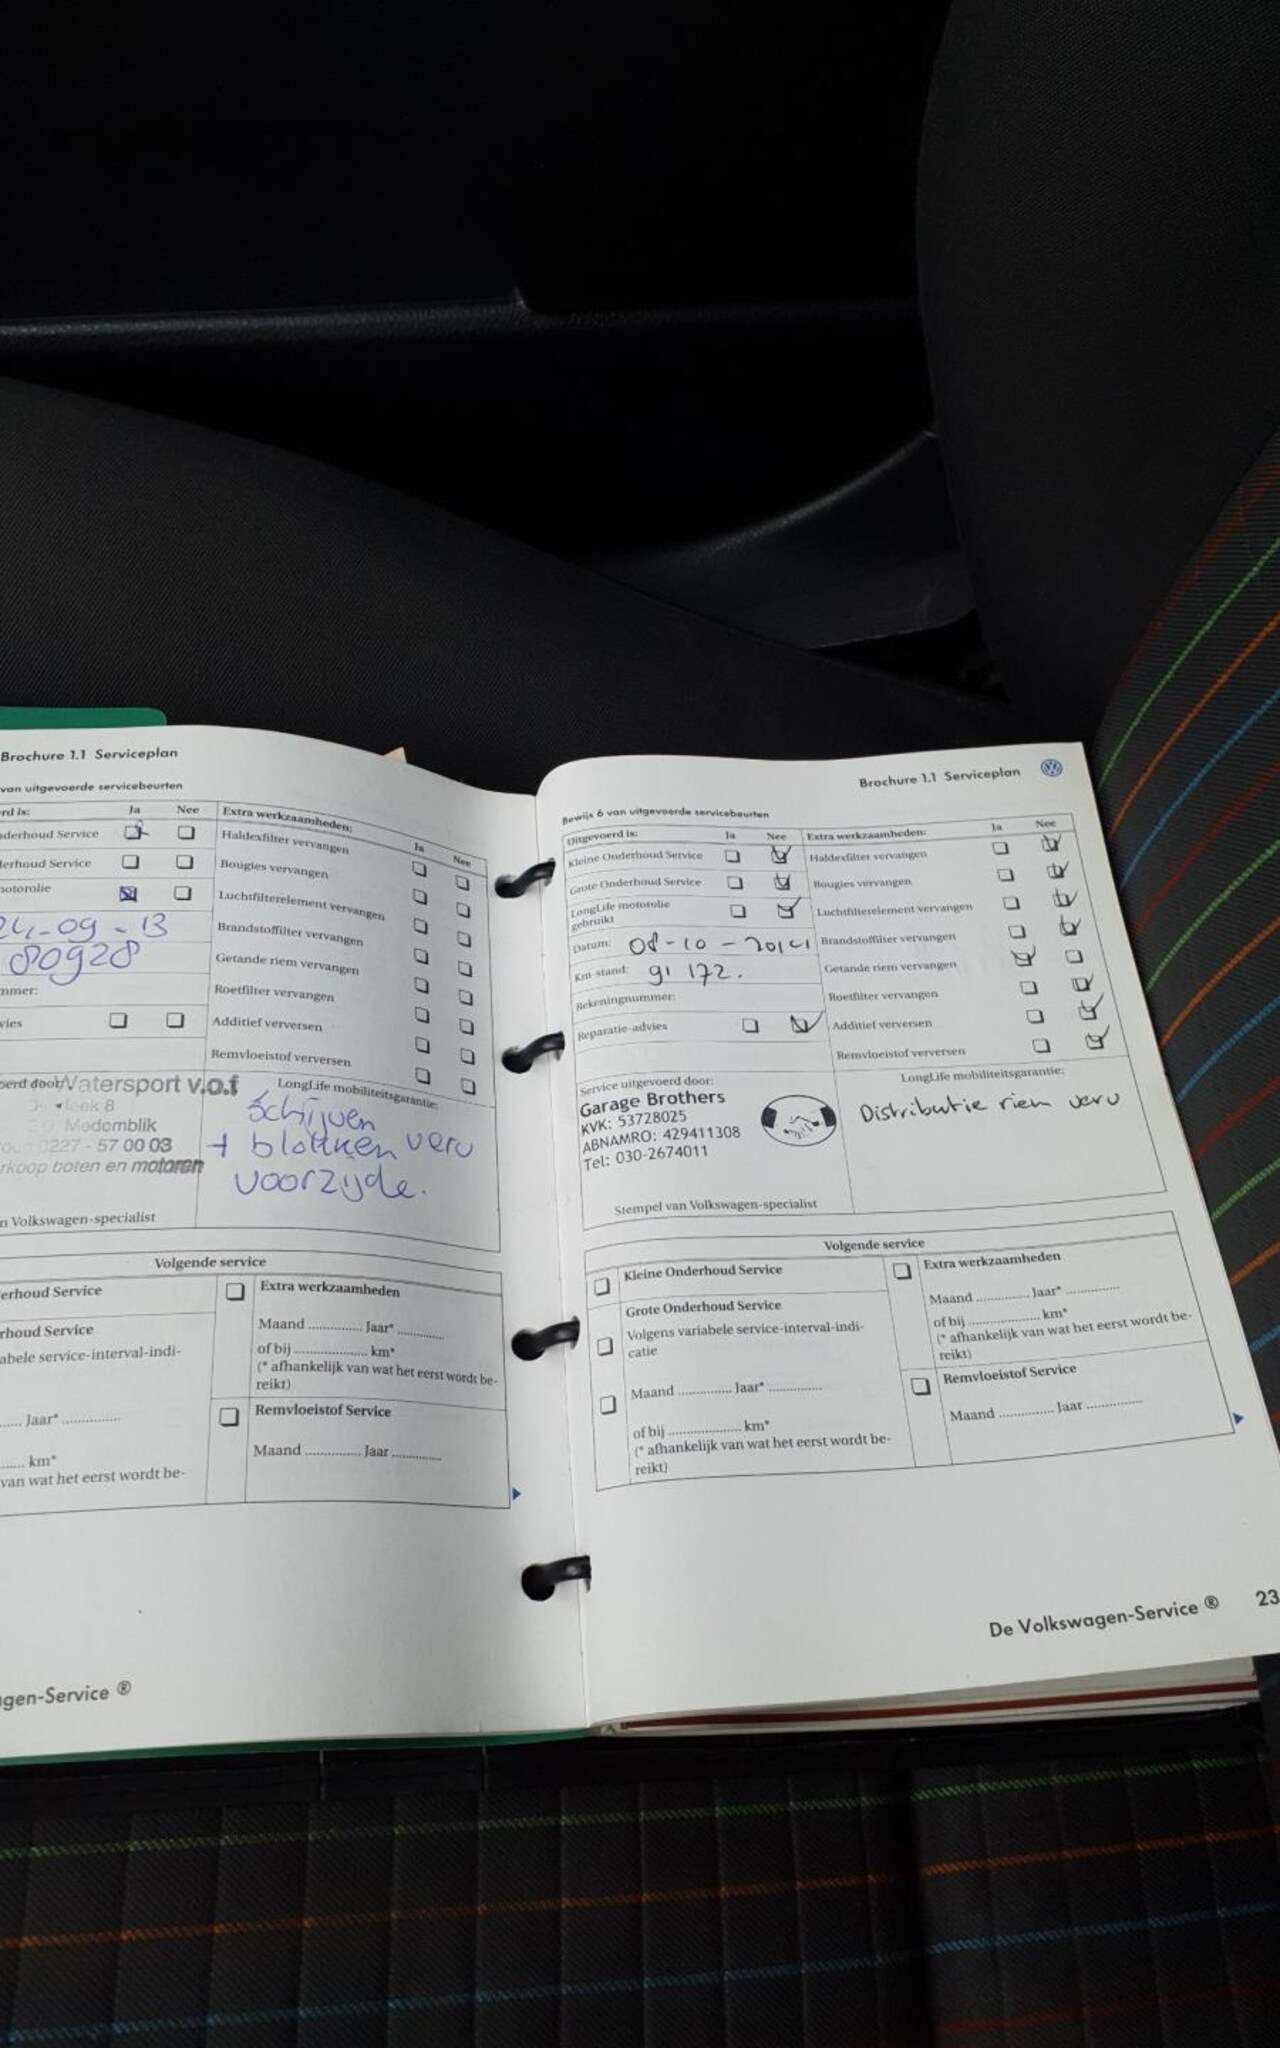 Brochure 1.1 Serviceplan
van uitgevoerde servicebeurten
rd is: Ja Nee
nderhoud Service
derhoud Service
motorolie
24-09-13
80928
mmer:
vies
Extra werkzaamheden: Ja Nee
Haldexfilter vervangen
Bougies vervangen
Luchtfilterelement vervangen
Brandstoffilter vervangen
Getande riem vervangen
Roetfilter vervangen
Additief verversen
Remvloeistof verversen
oerd door:
Watersport v.o.f
8
Medemblik
0227 - 57 00 03
rkoop boten en motoren
n Volkswagen-specialist
LongLife mobiliteitsgarantie:
Schijven
+ blokken verv
voorzijde.
Volgende service
erhoud Service
rhoud Service
abele service-interval-indi-
Jaar*
km*
van wat het eerst wordt be-
Extra werkzaamheden
Maand .............. Jaar* ............
of bij ...................... km*
(* afhankelijk van wat het eerst wordt be-
reikt)
Remvloeistof Service
Maand ................ Jaar ..............
agen-Service ®
Brochure 1.1 Serviceplan
Bewijs 6 van uitgevoerde servicebeurten
Uitgevoerd is: Ja Nee
Kleine Onderhoud Service
Grote Onderhoud Service
LongLife motorolie
gebruikt
Datum: 08-10-2014
Km-stand: 91 172.
Rekeningnummer:
Reparatie-advies
Extra werkzaamheden: Ja Nee
Haldexfilter vervangen
Bougies vervangen
Luchtfilterelement vervangen
Brandstoffilter vervangen
Getande riem vervangen
Roetfilter vervangen
Additief verversen
Remvloeistof verversen
Service uitgevoerd door:
Garage Brothers
KVK: 53728025
ABNAMRO: 429411308
Tel: 030-2674011
Stempel van Volkswagen-specialist
LongLife mobiliteitsgarantie:
Distributie riem verv
Volgende service
Kleine Onderhoud Service
Grote Onderhoud Service
Volgens variabele service-interval-indi-
catie
Maand ............... Jaar* ...............
of bij ..................... km*
(* afhankelijk van wat het eerst wordt be-
reikt)
Extra werkzaamheden
Maand ............... Jaar* ...............
of bij ..................... km*
(* afhankelijk van wat het eerst wordt be-
reikt)
Remvloeistof Service
Maand ............... Jaar ...............
De Volkswagen-Service ® 23